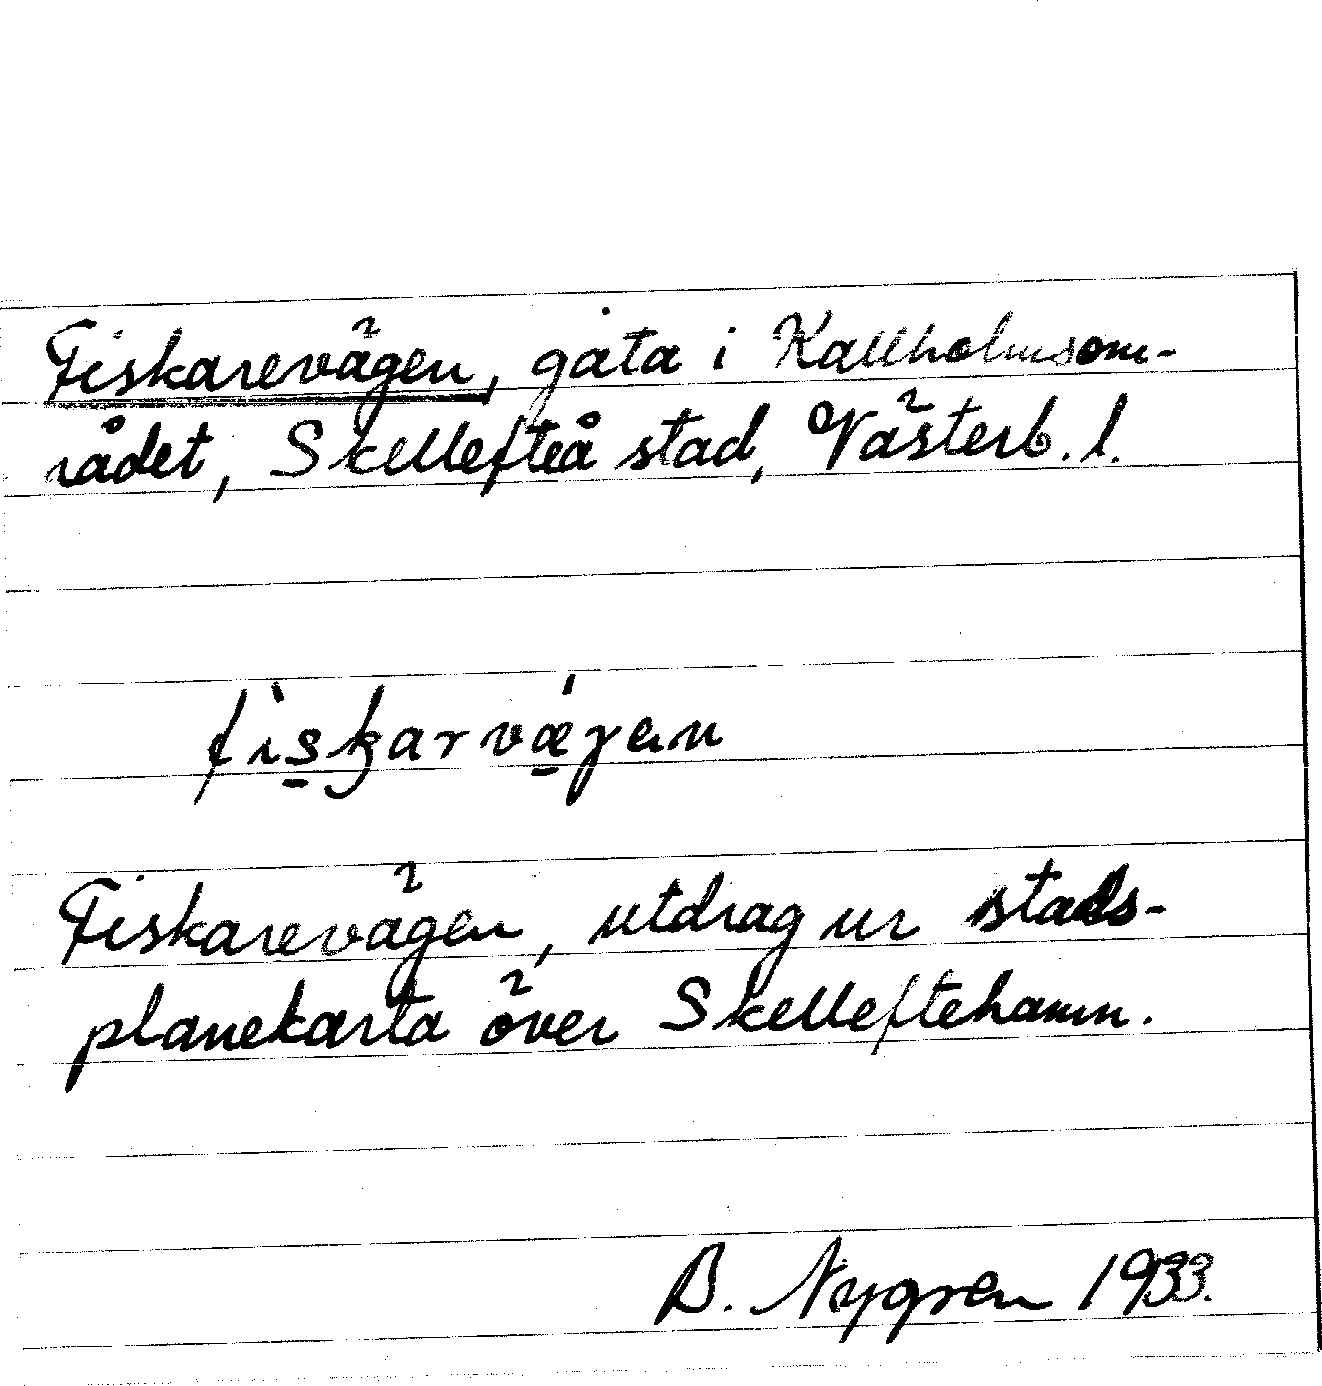 Fiskarevägen, gata i Kallholmsom-
rådet, Skellefteå stad, Västerb. l.
fìs̱karvǽ̱gen
Fiskarevägen, utdrag ur stads-
planekarta över Skelleftehamn.
B. Nygren 1933.